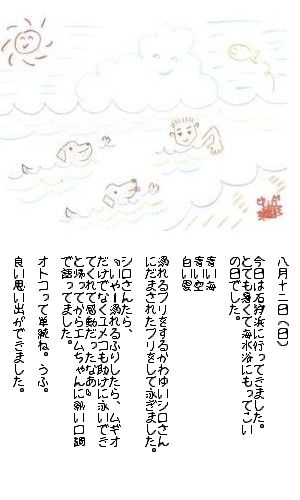 八月十二日(日)
今日は石狩浜に行ってきました。
とても暑くて海水浴にもってこい
の日でした。
青い海
青い空
白い雲
溺れるフリをするかわゆいシロさん
にだまされたフリをして泳ぎました。
シロさんたら、
「いやー溺れるふりしたら、ムギオ
だけでなくユメコも助けに泳いでき
てくれて感動だったなあ」
と帰ってからエムちゃんに熱い口調
で語ってました。
オトコって単純ね。うふ。
良い思い出ができました。